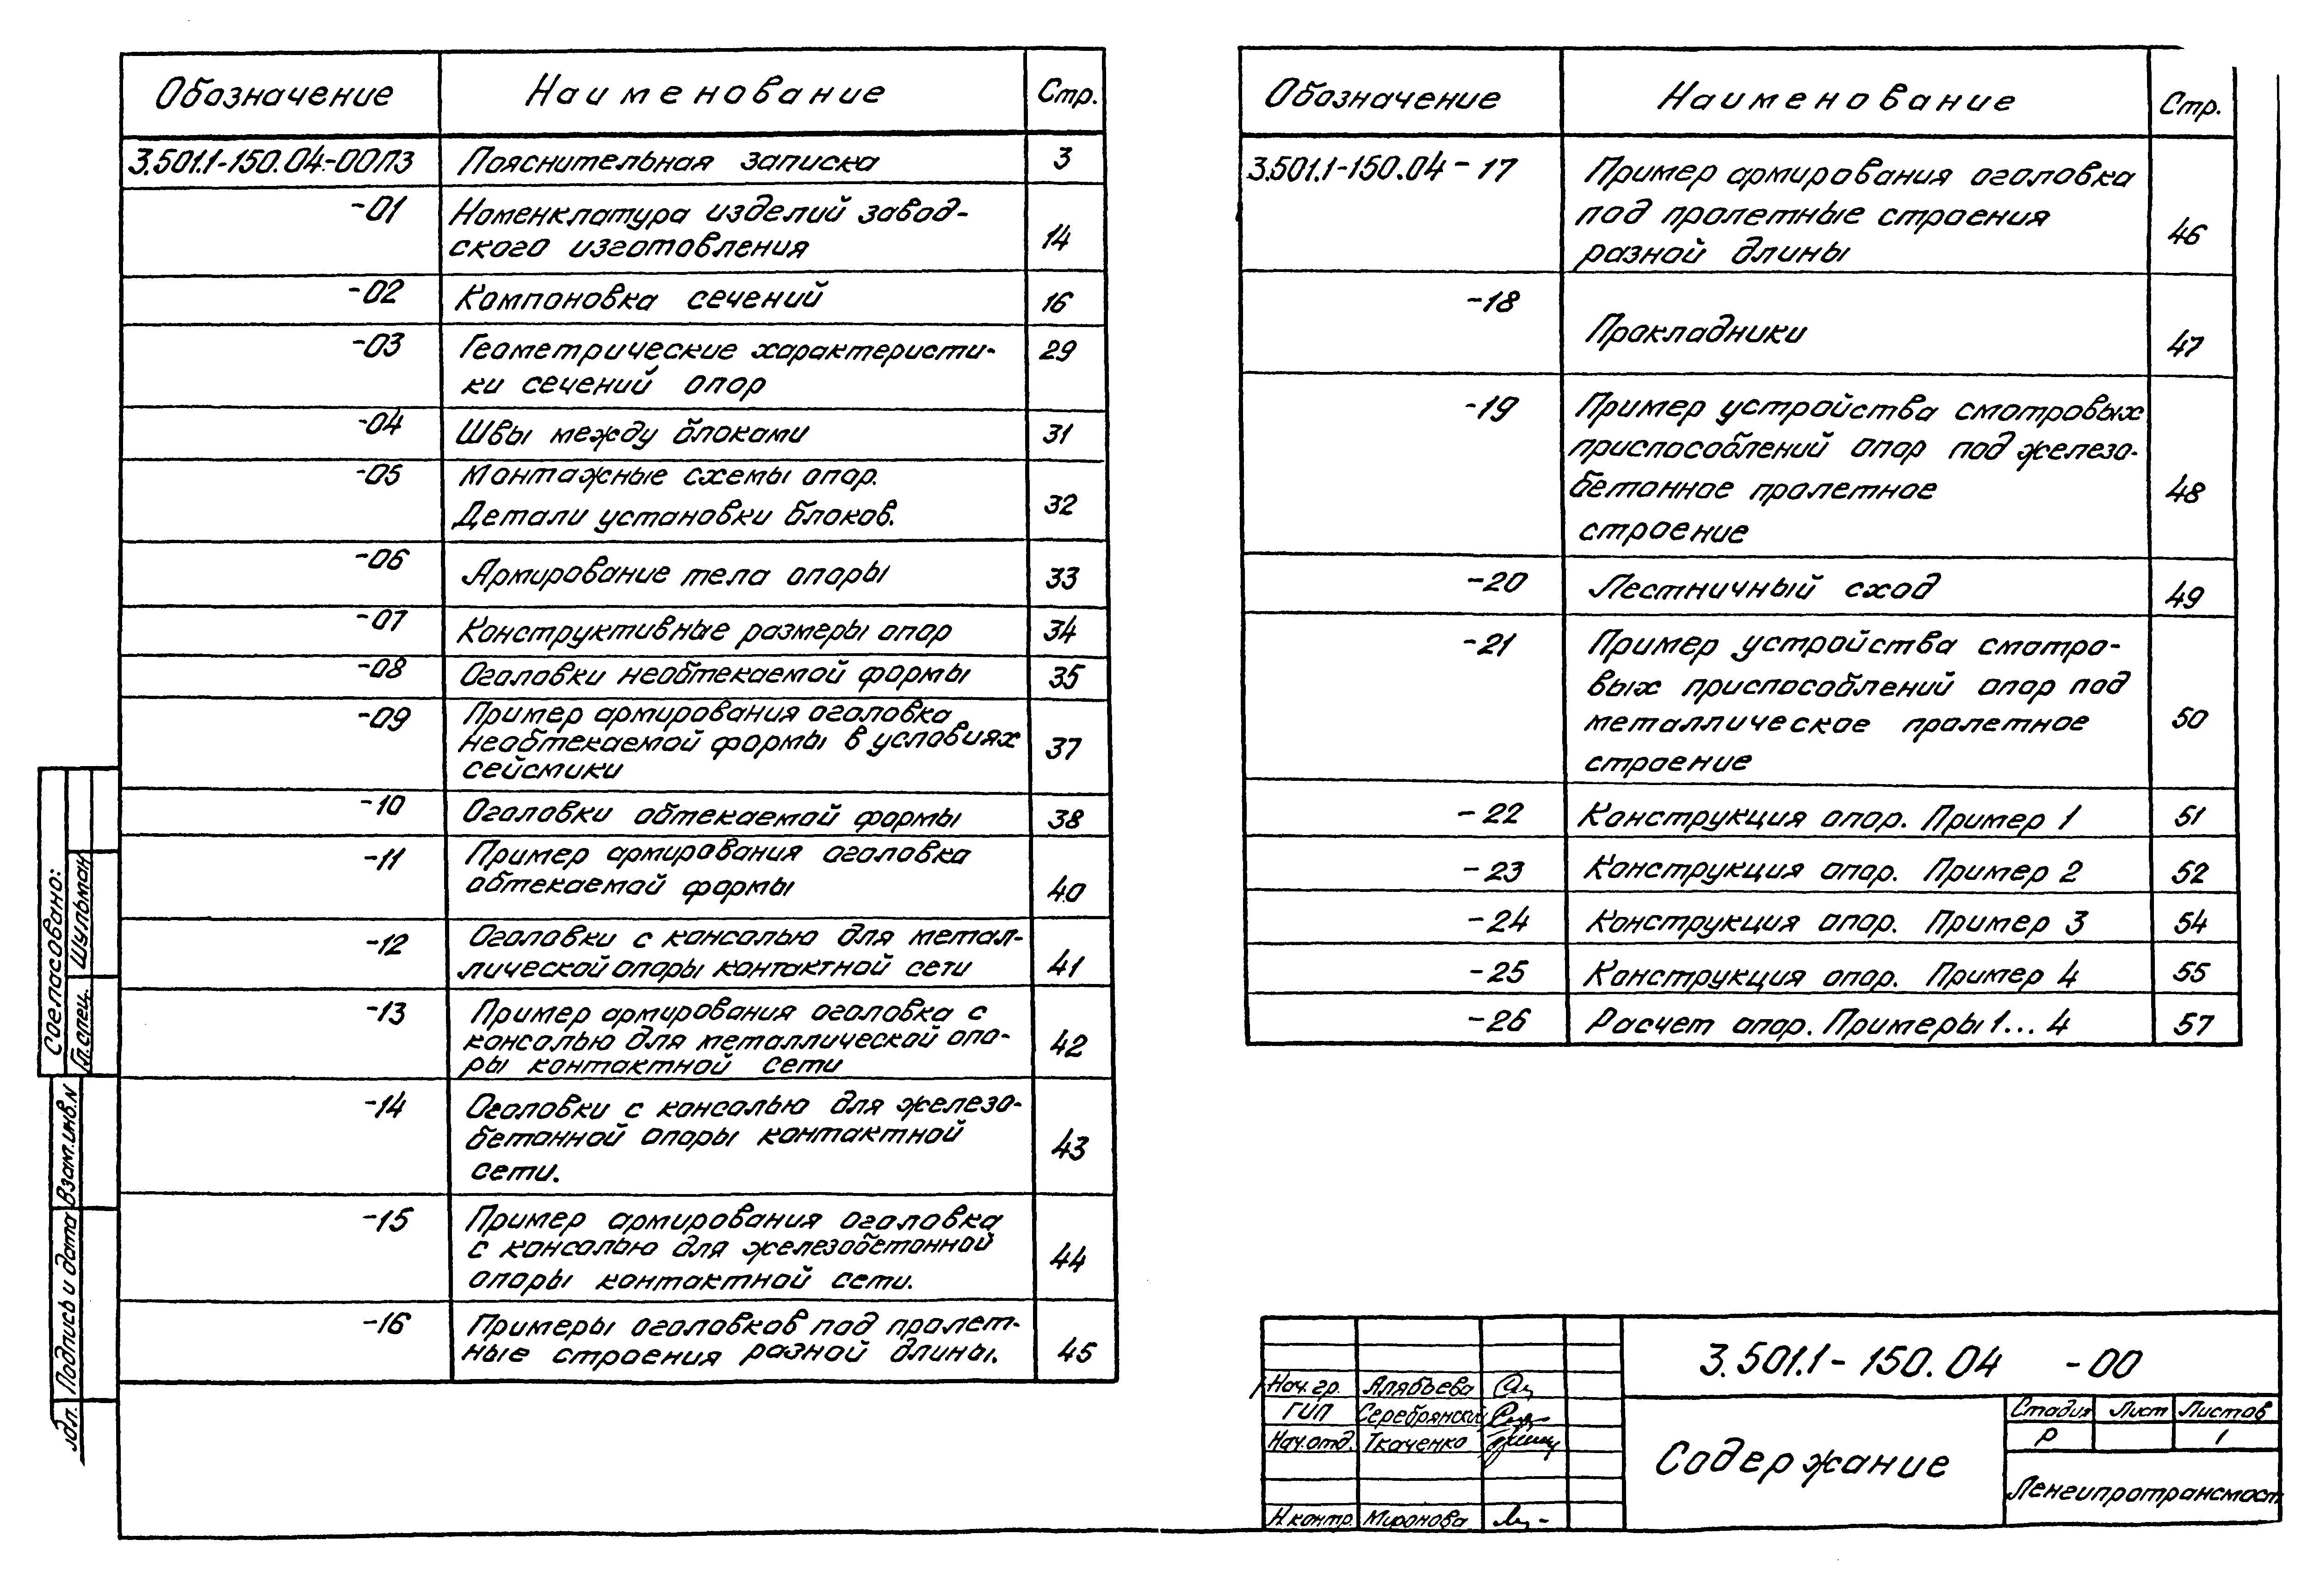 Обозначение Наименование Стр.
3.501.1-150.04-00ПЗ Пояснительная записка 3
-01 Номенклатура изделий завод-
ского изготовления 14
-02 Компоновка сечений 16
-03 Геометрические характеристи- 29
ки сечений опор
-04 Швы между блоками 31
-05 Монтажные схемы опор.
Детали установки блоков. 32
-06 Армирование тела опоры 33
-07 Конструктивные размеры опор 34
-08 Оголовки необтекаемой формы 35
-09 Пример армирования оголовка
необтекаемой формы в условиях 37
сейсмики
-10 Оголовки обтекаемой формы 38
-11 Пример армирования оголовка
обтекаемой формы 40
-12 Оголовки с консолью для метал-
лической опоры контактной сети 41
-13 Пример армирования оголовка с
консолью для металлической опо- 42
ры контактной сети
-14 Оголовки с консолью для железо-
бетонной опоры контактной 43
сети.
-15 Пример армирования оголовка
с консолью для железобетонной 44
опоры контактной сети.
-16 Примеры оголовков под пролет-
ные строения разной длины. 45
Обозначение Наименование Стр.
3.501.1-150.04-17 Пример армирования оголовка
под пролетные строения 46
разной длины
-18 Прокладники 47
-19 Пример устройства смотровых
приспособлений опор под железо-
бетонное пролетное 48
строение
-20 Лестничный сход 49
-21 Пример устройства смотро-
вых приспособлений опор под
металлическое пролетное 50
строение
-22 Конструкция опор. Пример 1 51
-23 Конструкция опор. Пример 2 52
-24 Конструкция опор. Пример 3 54
-25 Конструкция опор. Пример 4 55
-26 Расчет опор. Примеры 1...4 57
Согласовано:
Гл.спец. Шульман
Взам.инв.N
Подпись и дата
подл.
3.501.1-150.04 -00
Нач.гр. Алябьева
ГИП Серебрянский
Нач.отд. Ткаченко
Н.контр. Миронова
Содержание
Стадия Лист Листов
Р 1
Ленгипротрансмост